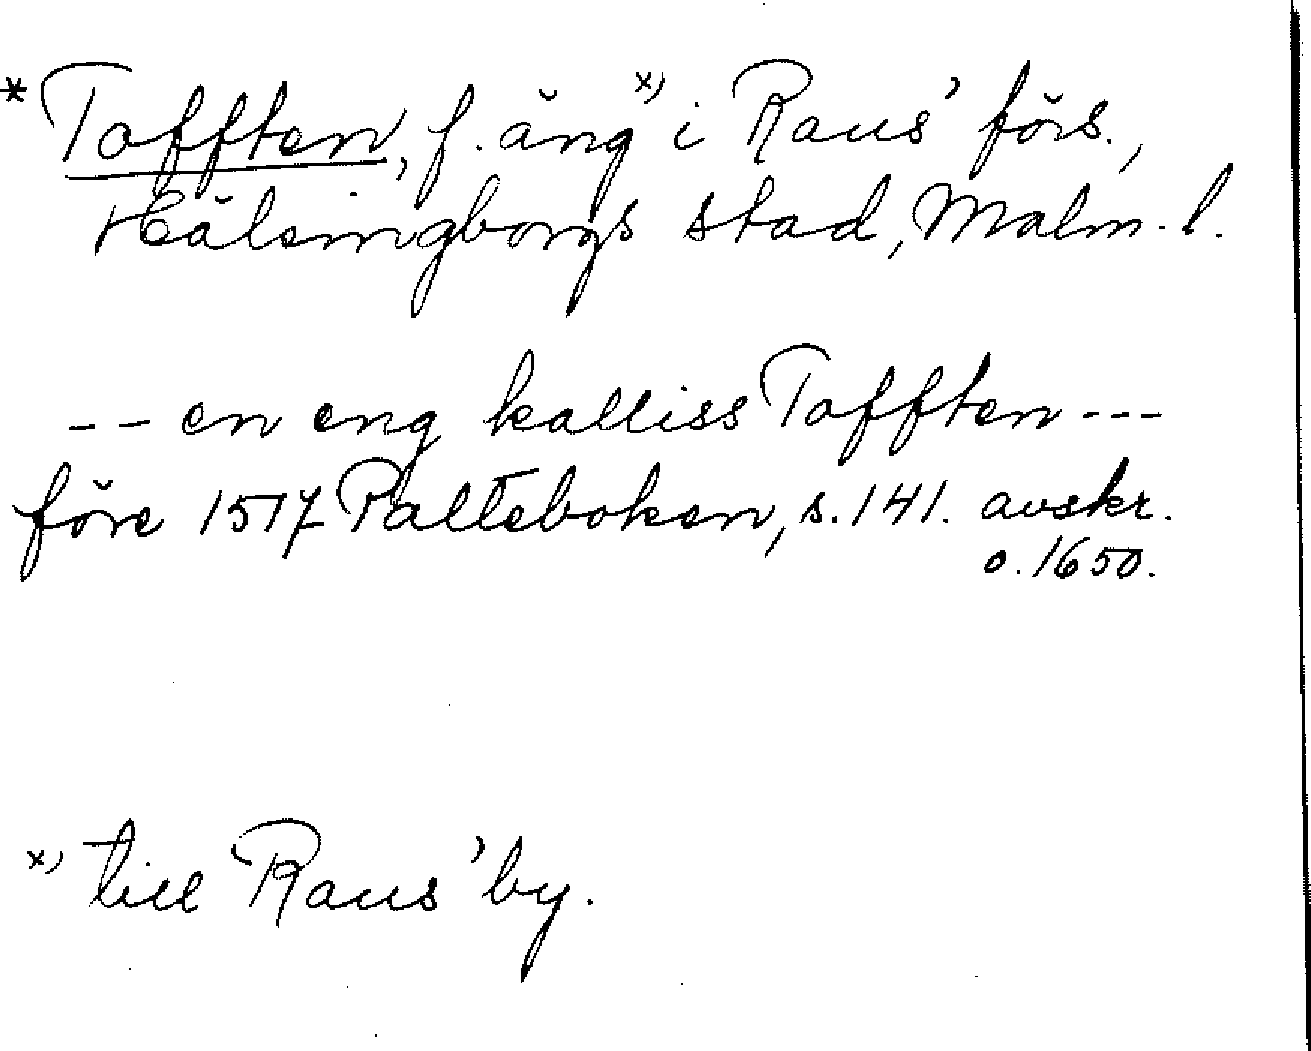 * Tofften, f. äng x) i Raus' förs.,
Hälsingborgs stad, Malm. l.
-- en eng kalliss Tofften ---
före 1517 Palteboken, s. 141. avskr.
o. 1650.
x) till Raus' by.